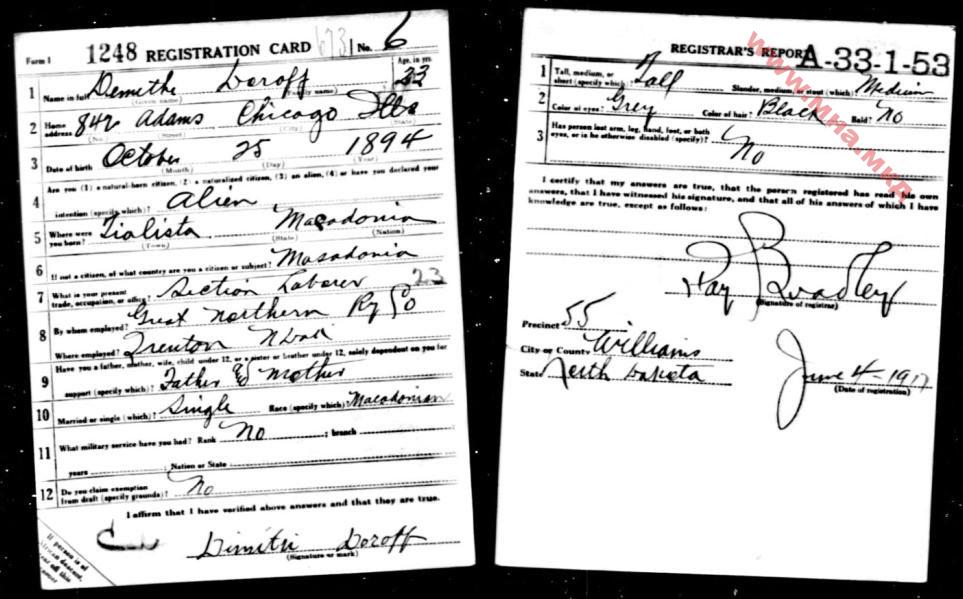 Form 1 1248 REGISTRATION CARD No. 6
1 Name in full Demithe Doroff Age, in yrs. 23
(Given name) (Family name)
2 Home address 842 Adams Chicago Ills
(No.) (Street) (City) (State)
3 Date of birth October 25 1894
(Month) (Day) (Year)
4 Are you (1) a natural-born citizen, (2) a naturalized citizen, (3) an alien, (4) or have you declared your
intention (specify which)? Alien
5 Where were you born? Tialista Macadonia
(Town) (State) (Nation)
6 If not a citizen, of what country are you a citizen or subject? Masadonia
7 What is your present trade, occupation, or office? Section Laborer 23
8 By whom employed? Great Northern Ry Co
Where employed? Trenton N Dak
9 Have you a father, mother, wife, child under 12, or a sister or brother under 12, solely dependent on you for
support (specify which)? Father & Mother
10 Married or single (which)? Single Race (specify which) Macadonian
11 What military service have you had? Rank No ; branch
years ; Nation or State
12 Do you claim exemption from draft (specify grounds)? No
I affirm that I have verified above answers and that they are true.
Dimitri Doroff
(Signature or mark)
If person is of
African descent,
tear off this
corner
REGISTRAR'S REPORT A-33-1-53
1 Tall, medium, or short (specify which)? Tall Slender, medium, or stout (which)? Medium
2 Color of eyes? Grey Color of hair? Black Bald? No
3 Has person lost arm, leg, hand, foot, or both
eyes, or is he otherwise disabled (specify)? No
I certify that my answers are true, that the person registered has read his own
answers, that I have witnessed his signature, and that all of his answers of which I have
knowledge are true, except as follows:
Ray Bradley
(Signature of registrar)
Precinct 55
City or County Williams
State North Dakota June 4 1917
(Date of registration)
www.MHa.MKR